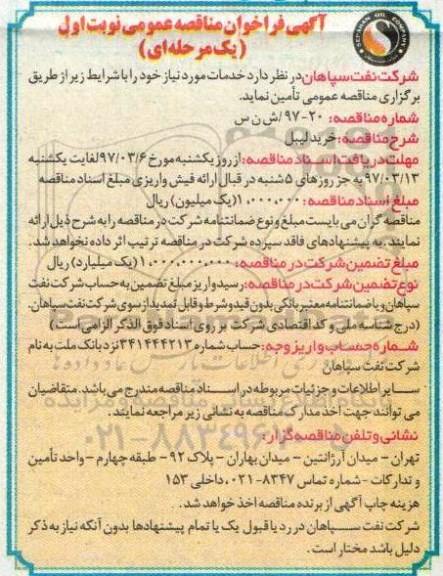 SEPAHAN OIL COMPANY
آگهی فراخوان مناقصه عمومی نوبت اول
(یک مرحله ای)
شرکت نفت سپاهان در نظر دارد خدمات مورد نیاز خود را با شرایط زیر از طریق
برگزاری مناقصه عمومی تأمین نماید.
شماره مناقصه: ۲۰-۹۷/ش ن س
شرح مناقصه: خرید لیبل
مهلت دریافت اسناد مناقصه: از روز یکشنبه مورخ ۹۷/۰۳/۶ لغایت یکشنبه
۹۷/۰۳/۱۳ به جز روزهای ۵ شنبه در قبال ارائه فیش واریزی مبلغ اسناد مناقصه
مبلغ اسناد مناقصه: ۱،۰۰۰،۰۰۰ (یک میلیون) ریال
مناقصه گران می بایست مبلغ و نوع ضمانتنامه شرکت در مناقصه را به شرح ذیل ارائه
نمایند. به پیشنهادهای فاقد سپرده شرکت در مناقصه ترتیب اثر داده نخواهد شد.
مبلغ تضمین شرکت در مناقصه: ۱،۰۰۰،۰۰۰،۰۰۰ (یک میلیارد) ریال
نوع تضمین شرکت در مناقصه: رسید واریز مبلغ تضمین به حساب شرکت نفت
سپاهان و یا ضمانتنامه معتبر بانکی بدون قید و شرط و قابل تمدید از سوی شرکت نفت سپاهان.
(درج شناسه ملی و کد اقتصادی شرکت بر روی اسناد فوق الذکر الزامی است)
شماره حساب واریز وجه: حساب شماره ۳۴۱۴۴۴۲۱۳ نزد بانک ملت به نام
شرکت نفت سپاهان
سایر اطلاعات و جزئیات مربوطه در اسناد مناقصه مندرج می باشد. متقاضیان
می توانند جهت اخذ مدارک مناقصه به نشانی زیر مراجعه نمایند.
۰۲۱-۸۸۳۴۹۶
نشانی و تلفن مناقصه گزار:
تهران - میدان آرژانتین - میدان بهاران - پلاک ۹۲ - طبقه چهارم - واحد تأمین
و تدارکات - شماره تماس ۸۳۴۷-۰۲۱، داخلی ۱۵۳
هزینه چاپ آگهی از برنده مناقصه اخذ خواهد شد.
شرکت نفت سپاهان در رد یا قبول یک یا تمام پیشنهادها بدون آنکه نیاز به ذکر
دلیل باشد مختار است.